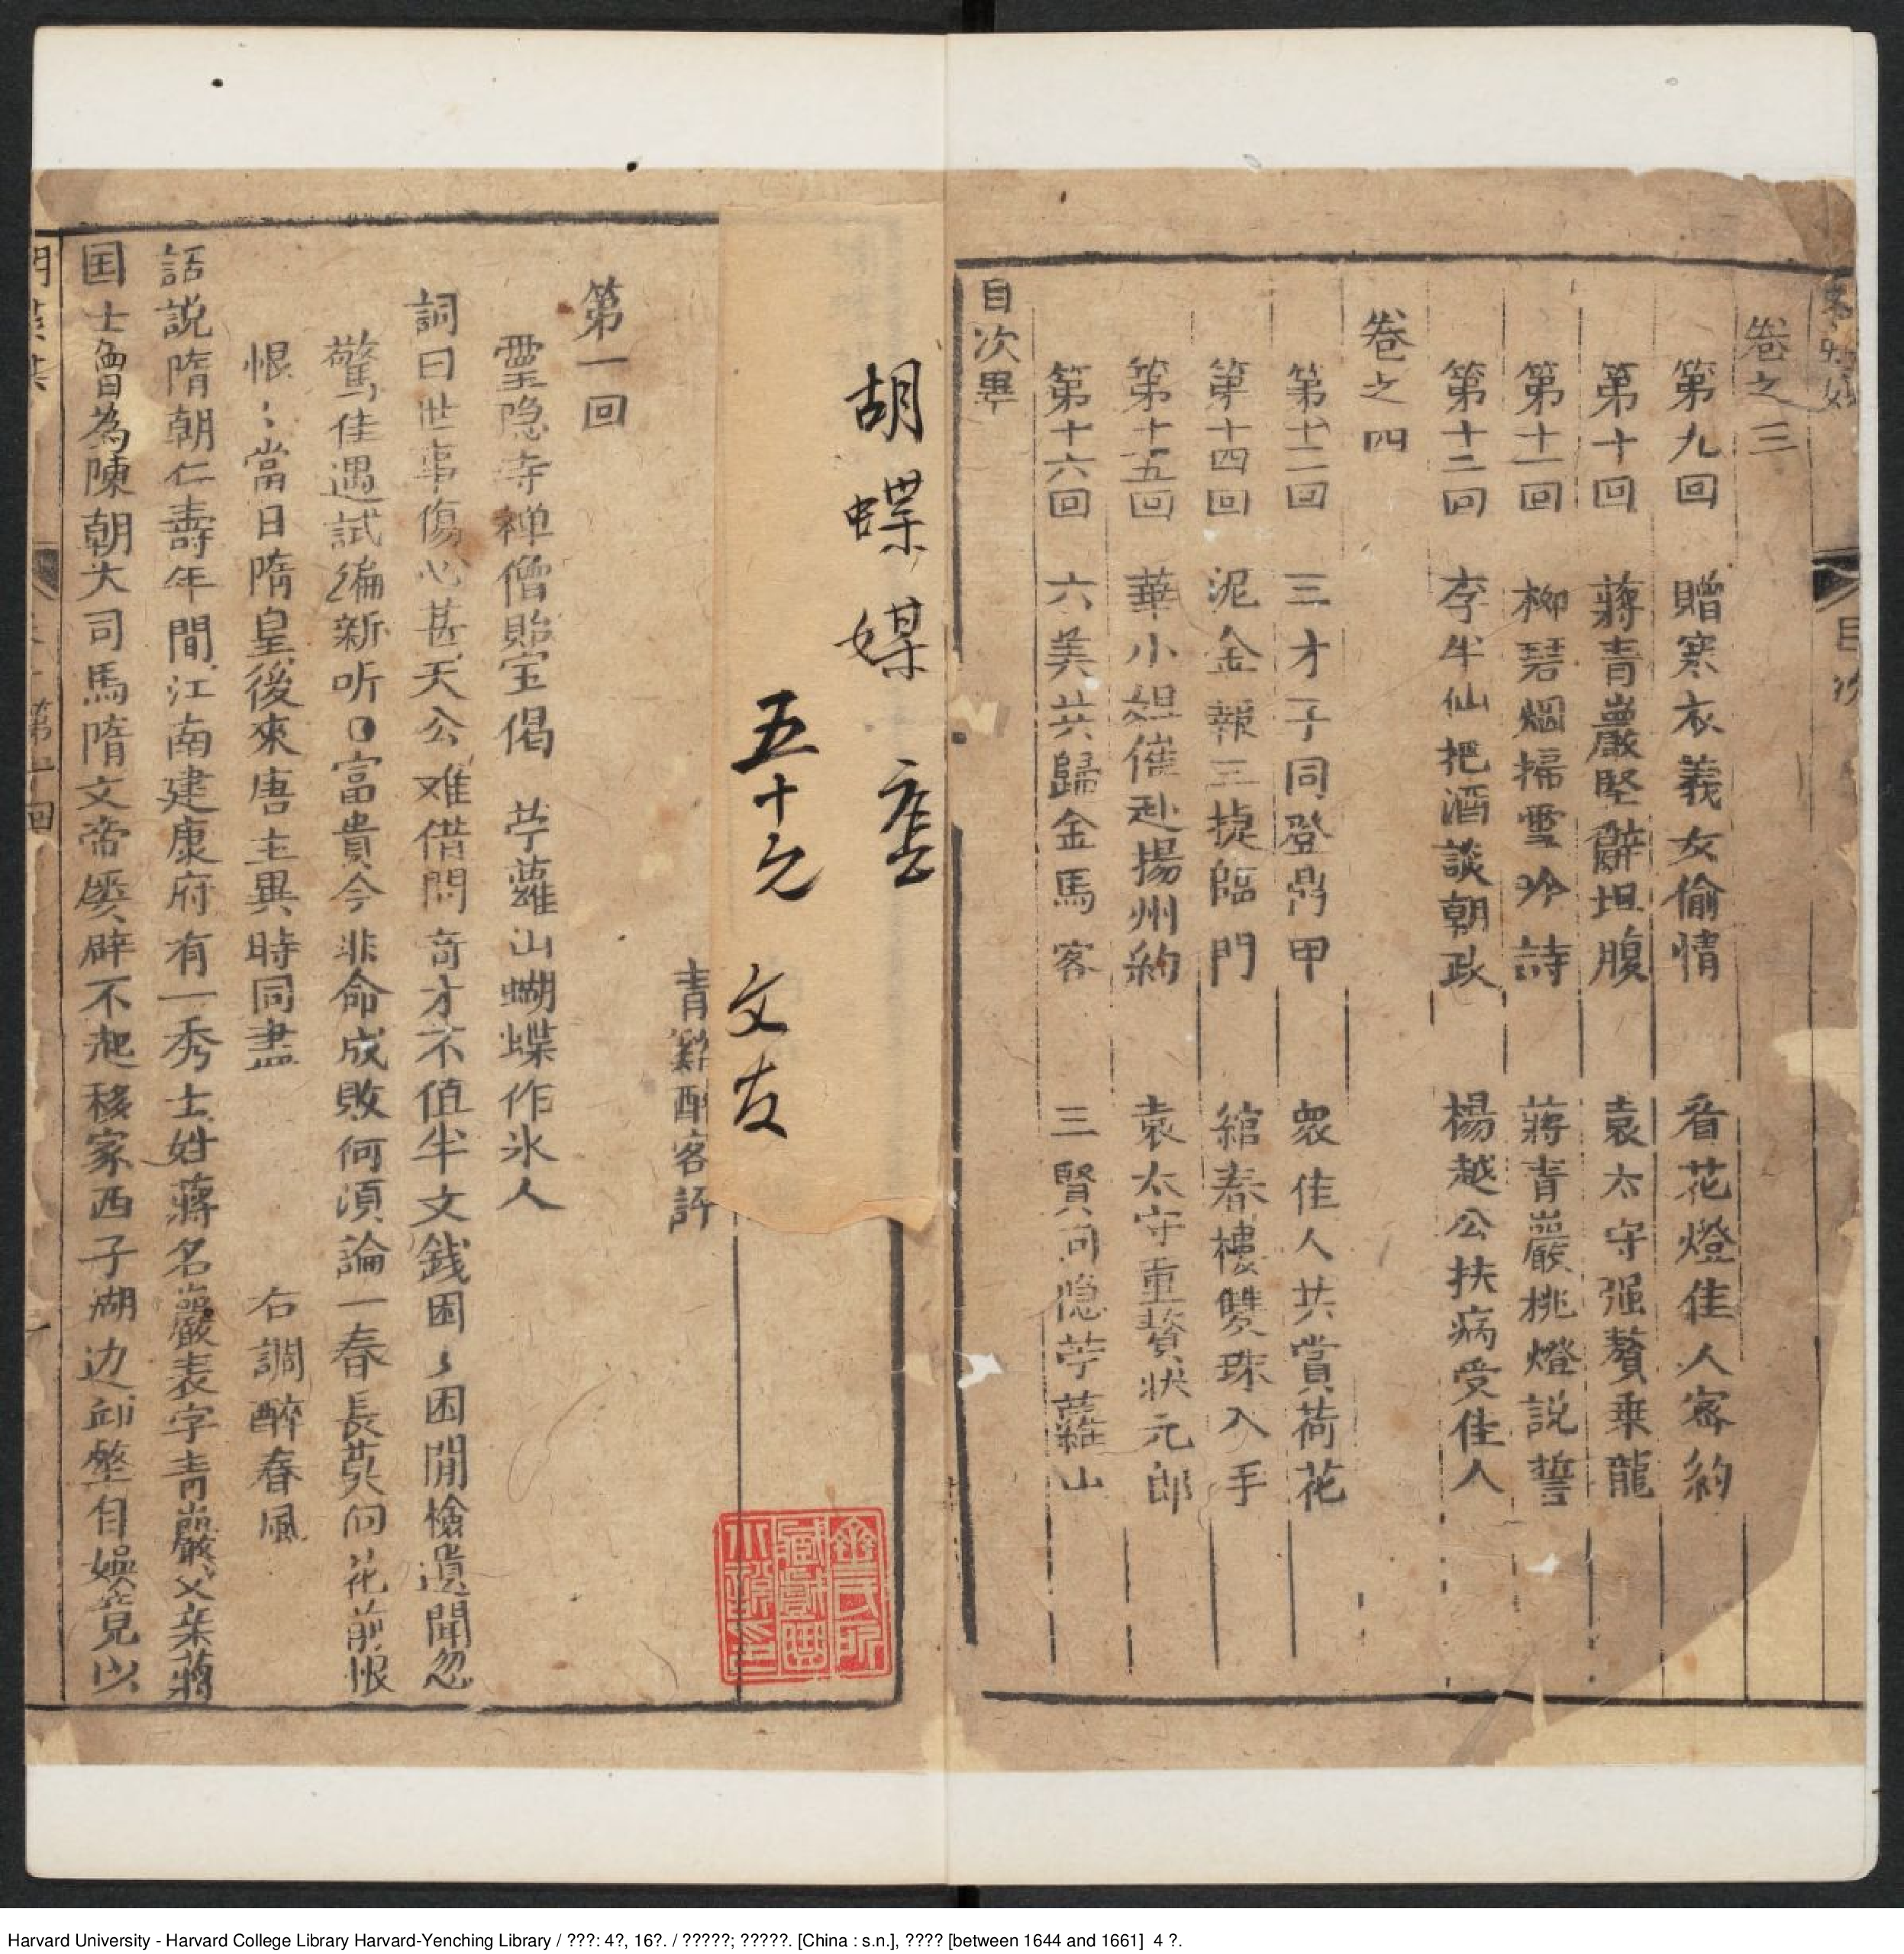 卷之三
第九回 贈寒衣義女偷情 看花燈佳人密約
第十回 蔣青巖堅辭坦腹 袁太守强贅乗龍
第十一回 柳碧烟掃雪吟詩 蔣青巖桃燈説誓
第十二回 李半仙把酒談朝政 楊越公扶病受佳人
卷之四
第十三回 三才子同登鼎甲 衆佳人共賞荷花
第十四回 泥金報三㨗臨門 綰春樓雙珠入手
第十五回 華小姐催赴揚州約 袁太守重贅状元郎
第十六回 六美共歸金馬客 三賢同隐苧蘿山
目次畢
目次
胡蝶媒
五十元
文友
青谿醉客評
第一回
靈隐寺禅僧貽宝偈 苧蘿山蝴蝶作氷人
詞曰世事傷心甚天公难借問奇才不值半文銭困〻困閒檢遺聞忽
驚佳遇試编新听口富貴今非命成敗何湏論一春長莫向花前恨
恨〻當日隋皇後來唐主異時同盡 右調醉春風
話説隋朝仁壽年間江南建康府有一秀士姓蔣名巖表字青巖父亲蔣
国士曽為陳朝大司馬隋文帝屡辟不起移家西子湖边邱壑自娛竟以
第一回
金氏所
臧
小説
Harvard University - Harvard College Library Harvard-Yenching Library / ???: 4?, 16?. / ?????; ?????. [China : s.n.], ???? [between 1644 and 1661] 4 ?.